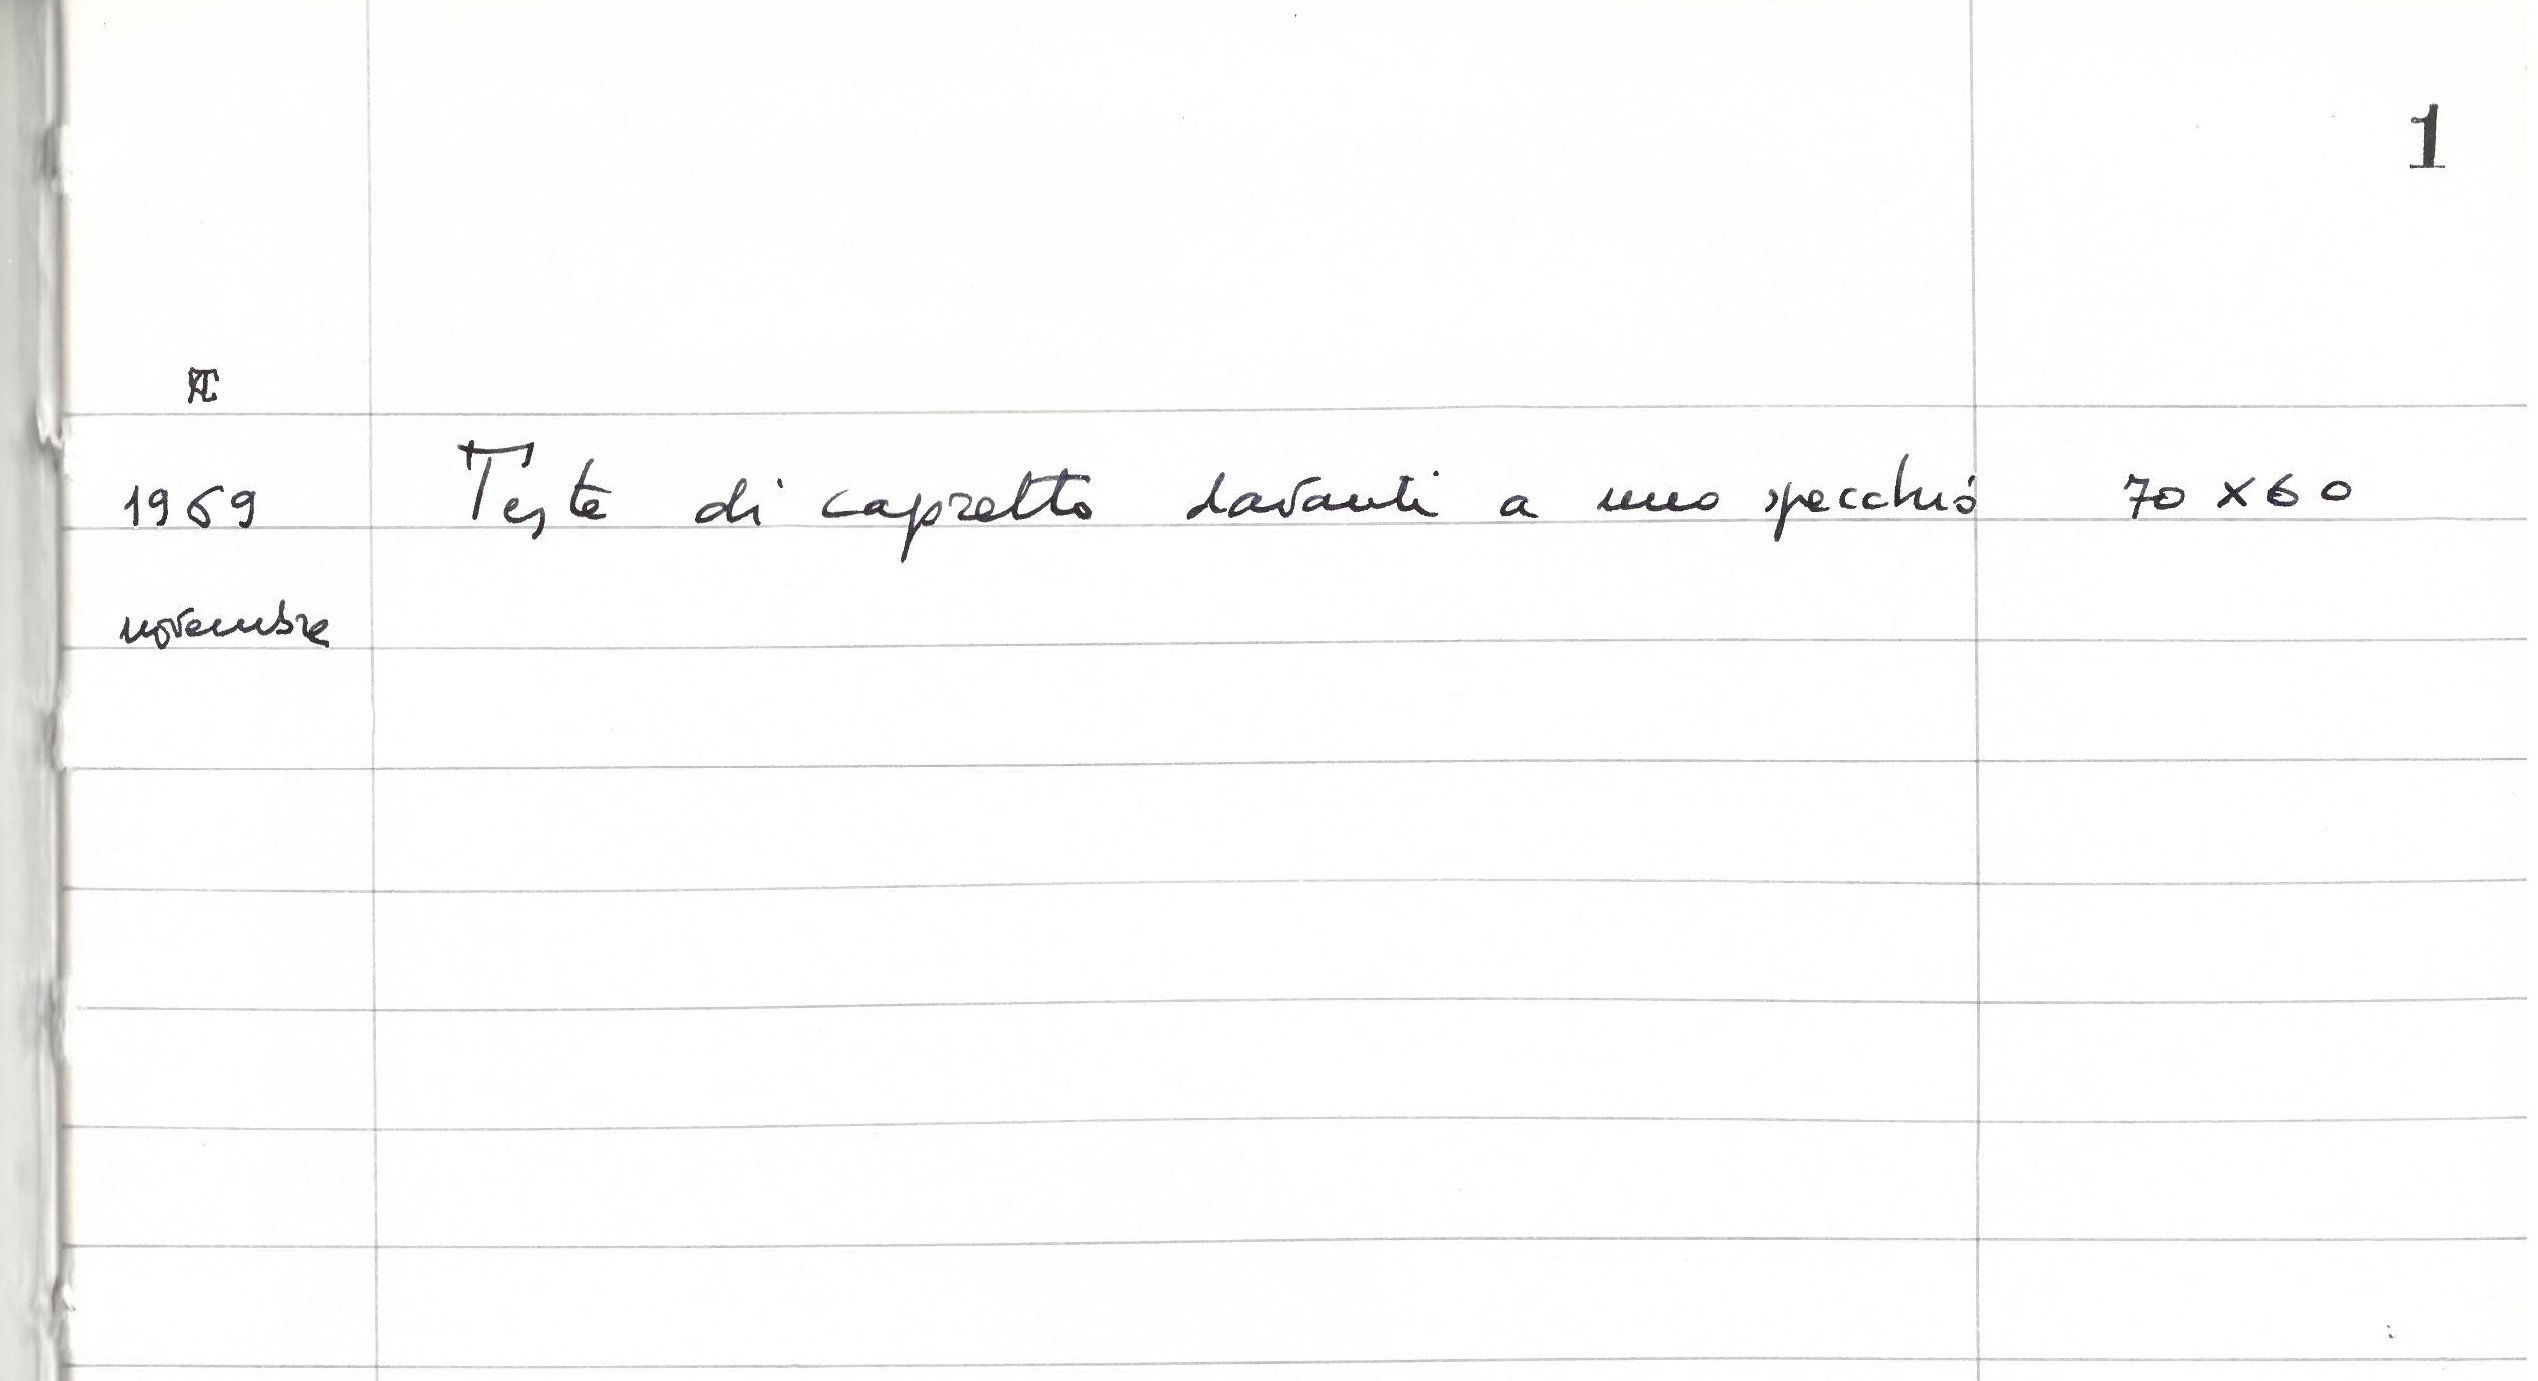 1
1969 Teste di capretto davanti a uno specchio 70 x 60
novembre